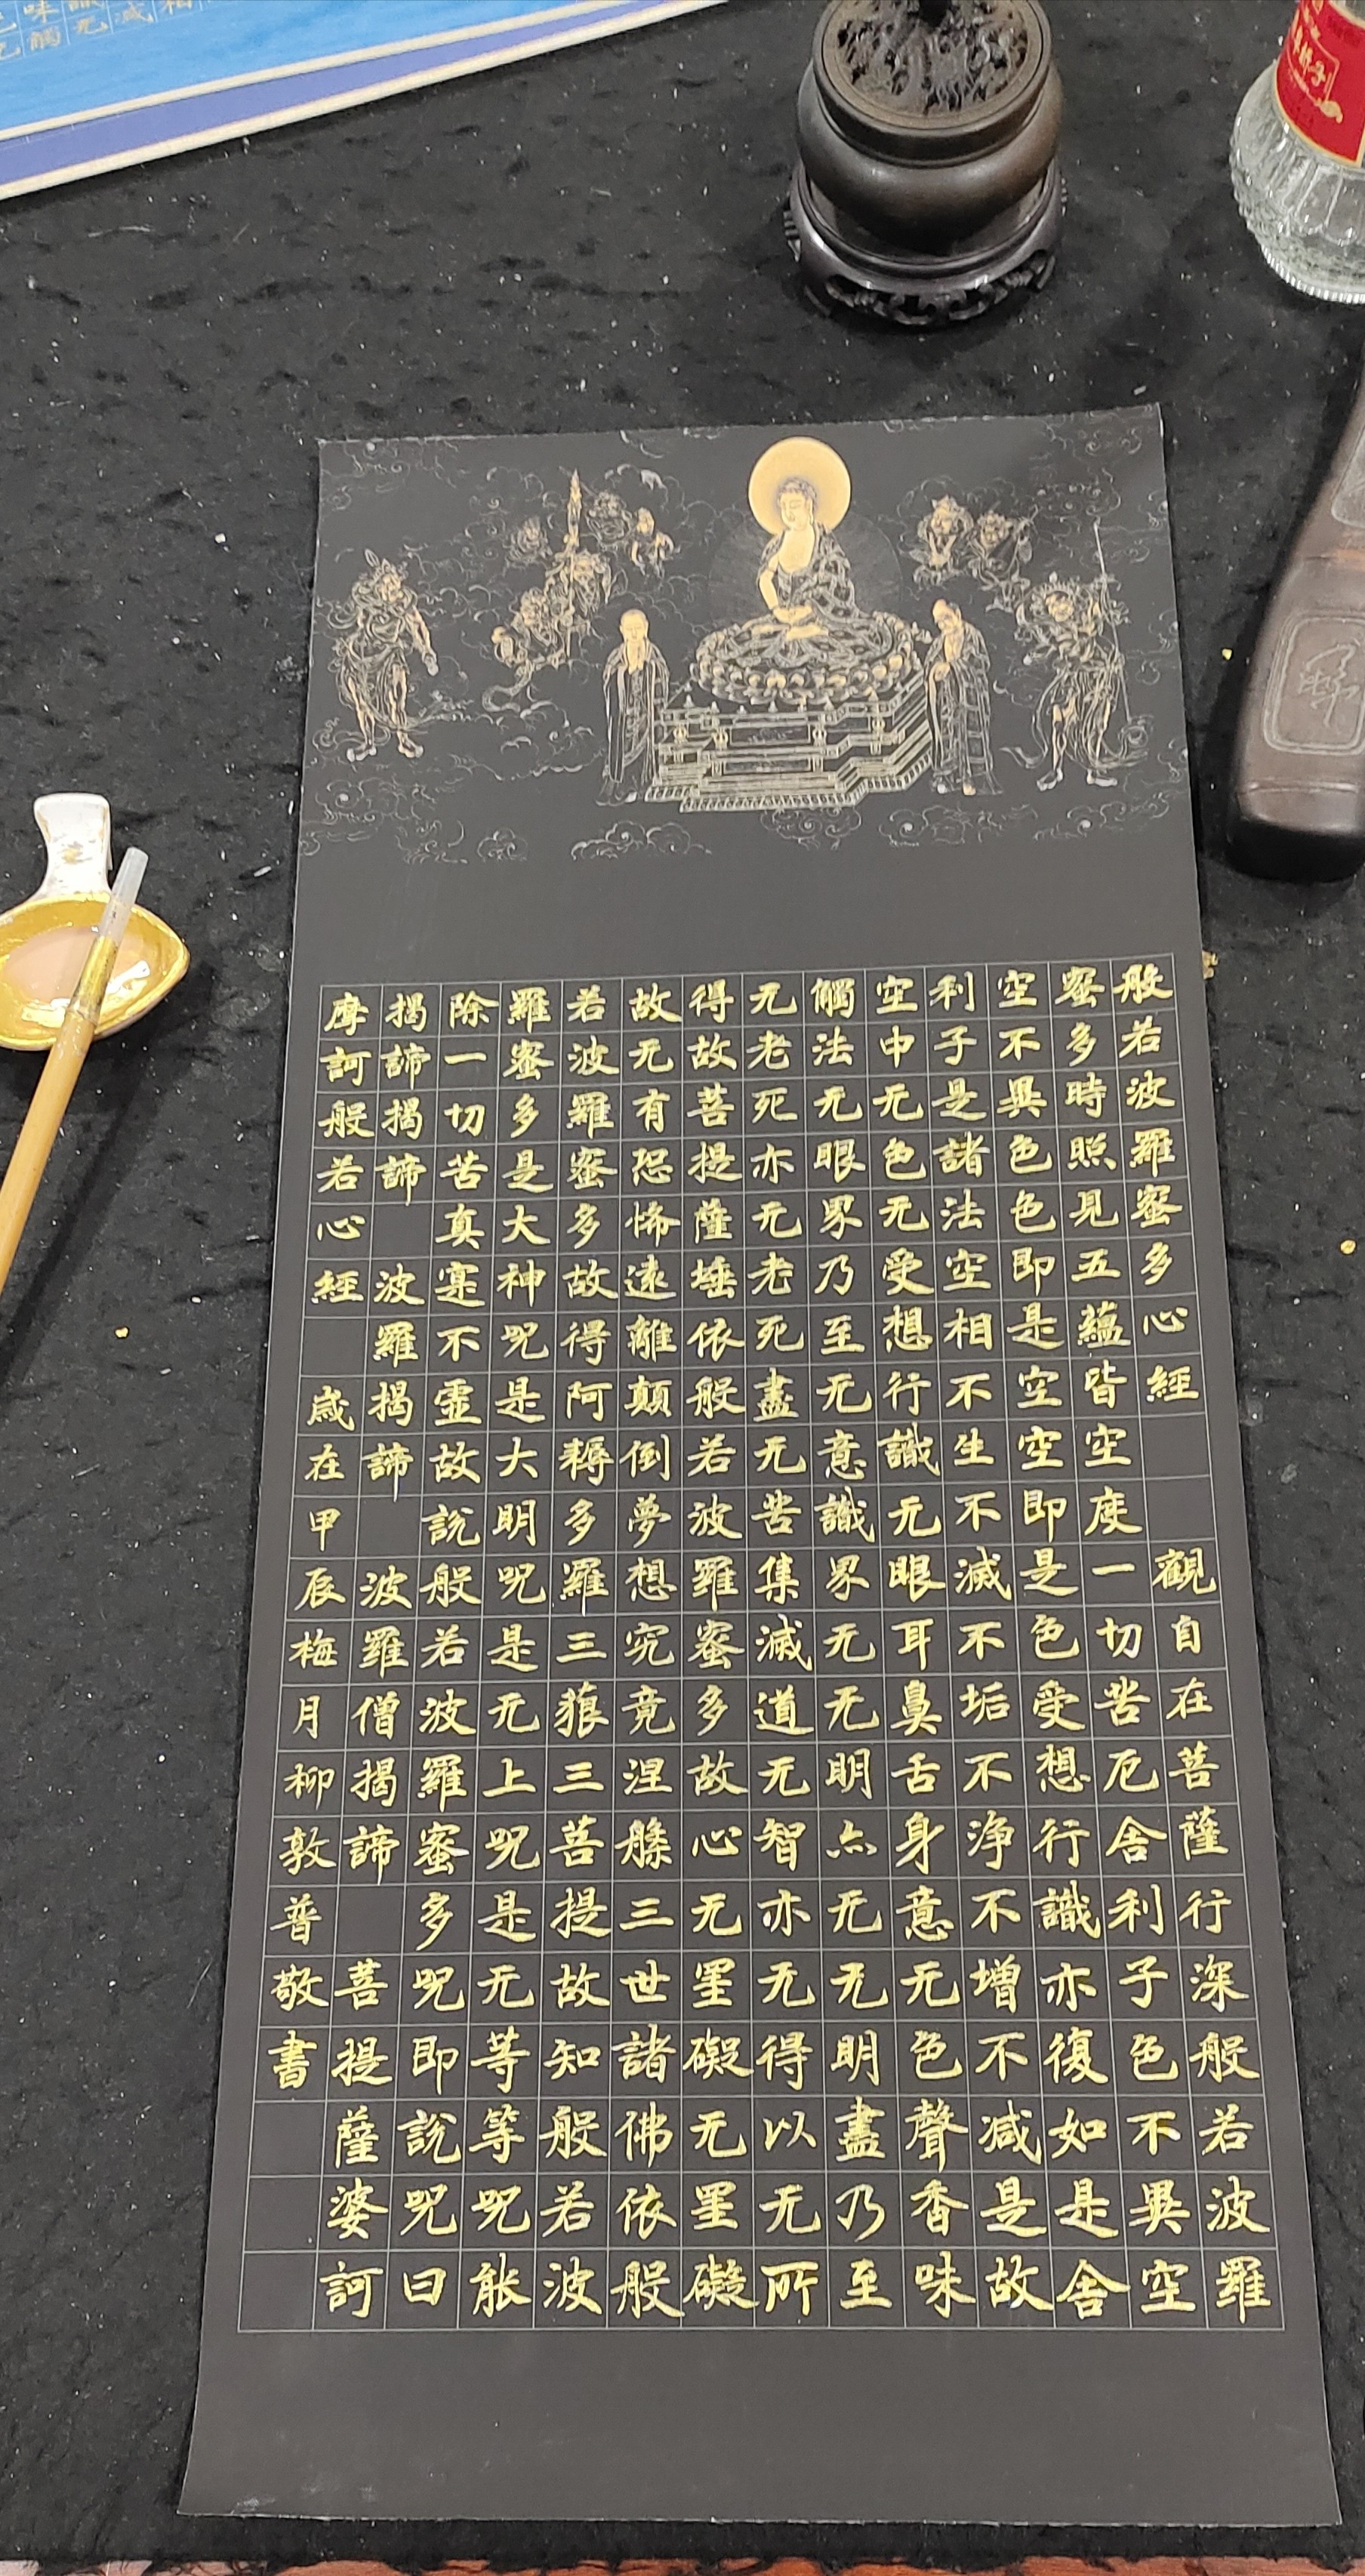 般若波羅蜜多心經 觀自在菩薩行深般若波羅
蜜多時照見五蘊皆空度一切苦厄舍利子色不異空
空不異色色即是空空即是色受想行識亦復如是舍
利子是諸法空相不生不滅不垢不净不增不减是故
空中无色无受想行識无眼耳鼻舌身意无色聲香味
觸法无眼界乃至无意識界无无明亦无无明盡乃至
无老死亦无老死盡无苦集滅道无智亦无得以无所
得故菩提薩埵依般若波羅蜜多故心无罣礙无罣礙
故无有恐怖遠離顛倒夢想究竟涅槃三世諸佛依般
若波羅蜜多故得阿耨多羅三藐三菩提故知般若波
羅蜜多是大神咒是大明咒是无上咒是无等等咒能
除一切苦真寔不虛故說般若波羅蜜多咒即說咒曰
揭諦揭諦 波羅揭諦 波羅僧揭諦 菩提薩婆訶
摩訶般若心經 歲在甲辰梅月柳敦普敬書